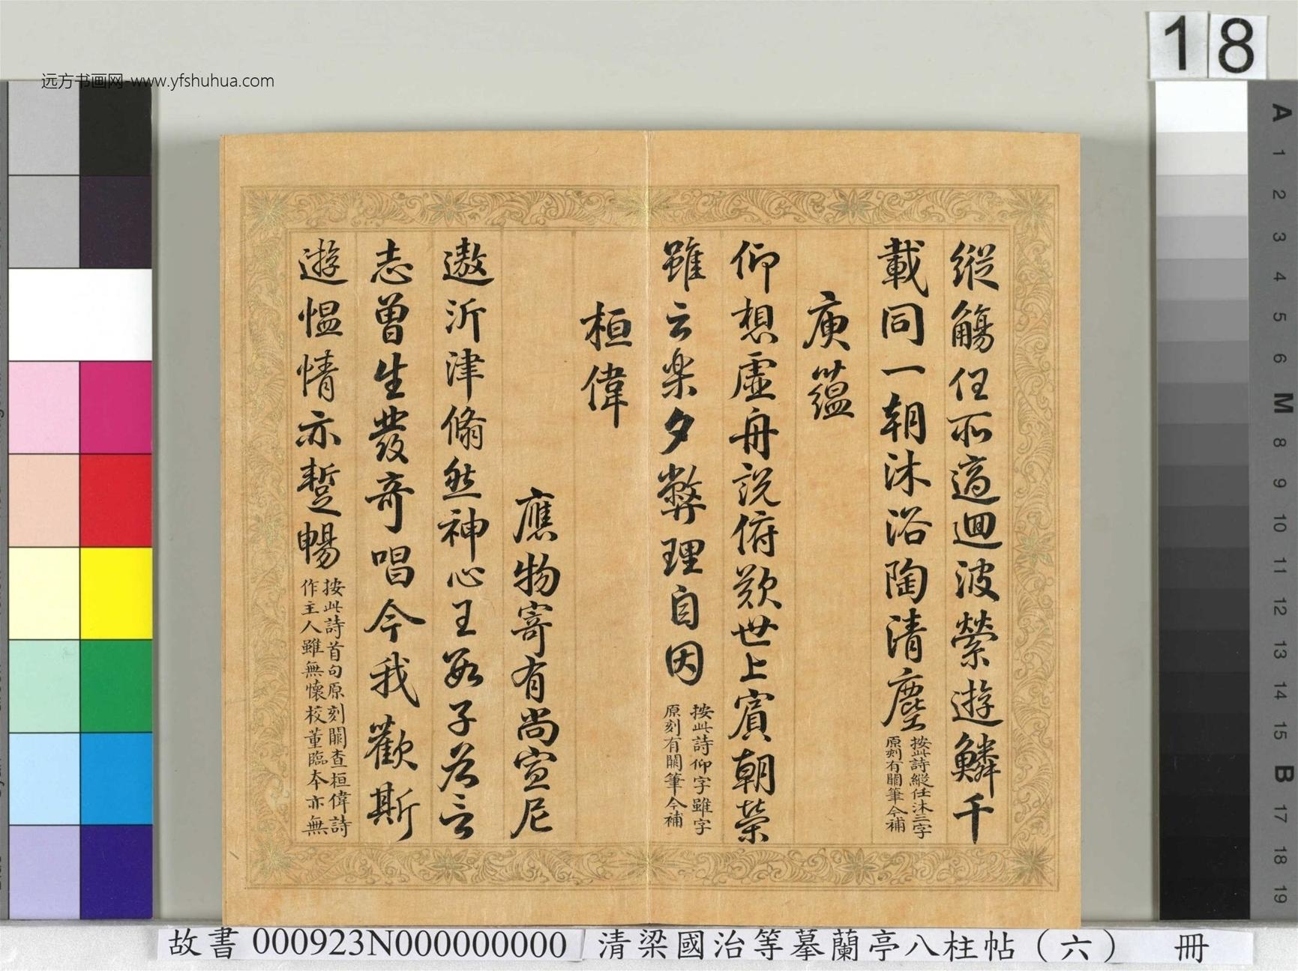 18
远方书画网-www.yfshuhua.com
縱觴任所適迴波縈遊鱗千
載同一朝沐浴陶清塵
按此詩縱任沐三字
原刻有闕筆今補
庾蘊
仰想虛舟說俯歎世上賓朝榮
雖云樂夕弊理自因
按此詩仰字雖字
原刻有闕筆今補
桓偉
應物寄有尚宣尼
遨沂津翛然神心王數子各言
志曾生發奇唱今我歡斯
遊慍情亦蹔暢
按此詩首句原刻闕查桓偉詩
作主人雖無懷校董臨本亦無
A
1
2
3
4
5
6
M
8
9
10
11
12
13
14
15
B
17
18
19
故書 000923N000000000 清梁國治等摹蘭亭八柱帖（六） 冊